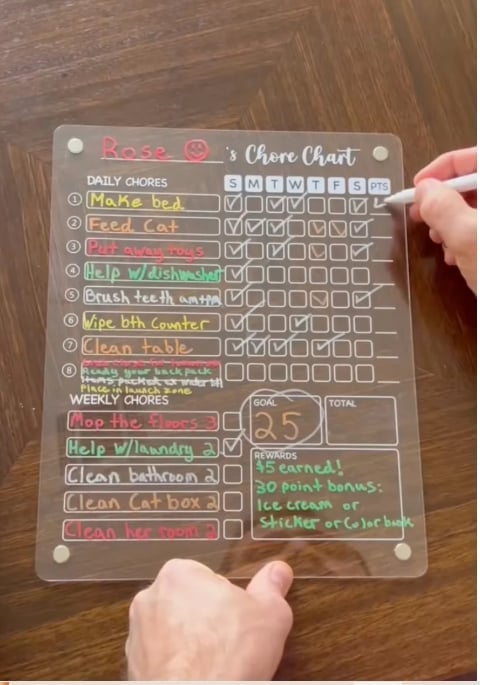 Rose 's Chore Chart
DAILY CHORES S M T W T F S PTS
1 Make bed
2 Feed Cat
3 Put away toys
4 Help w/dishwasher
5 Brush teeth am+pm
6 Wipe bth Counter
7 Clean table
8 Ready your backpack
Place in launch zone
WEEKLY CHORES
Mop the floors 3
Help w/laundry 2
Clean bathroom 2
Clean Cat box 2
Clean her room 2
GOAL
25
TOTAL
REWARDS
$5 earned!
30 point bonus:
Ice cream or
Sticker or Color book